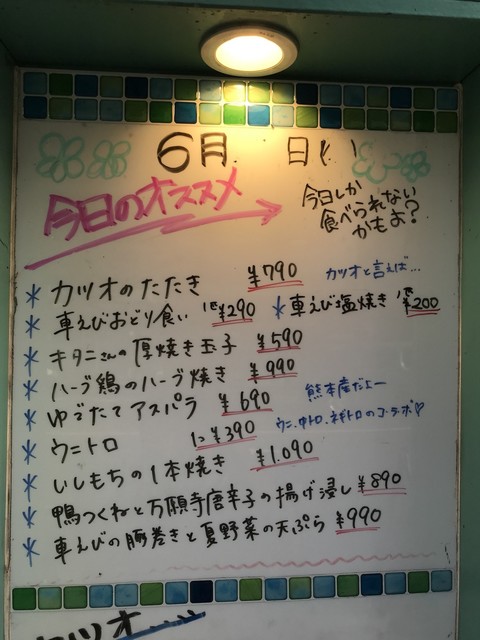 6月 日( )
今日のオススメ
今日しか
食べられない
かもよ?
* カツオのたたき ¥790 カツオと言えば…
* 車えびおどり食い 1匹 ¥290 * 車えび塩焼き 1匹 ¥200
* キタニさんの厚焼き玉子 ¥590
* ハーブ鶏のハーブ焼き ¥990
* ゆでたてアスパラ ¥690 熊本産だよー
* ウニトロ 1コ ¥390 ウニ、中トロ、ネギトロのコラボ♡
* いしもちの1本焼き ¥1.090
* 鴨つくねと万願寺唐辛子の揚げ浸し ¥890
* 車えびの豚巻きと夏野菜の天ぷら ¥990
カツオ